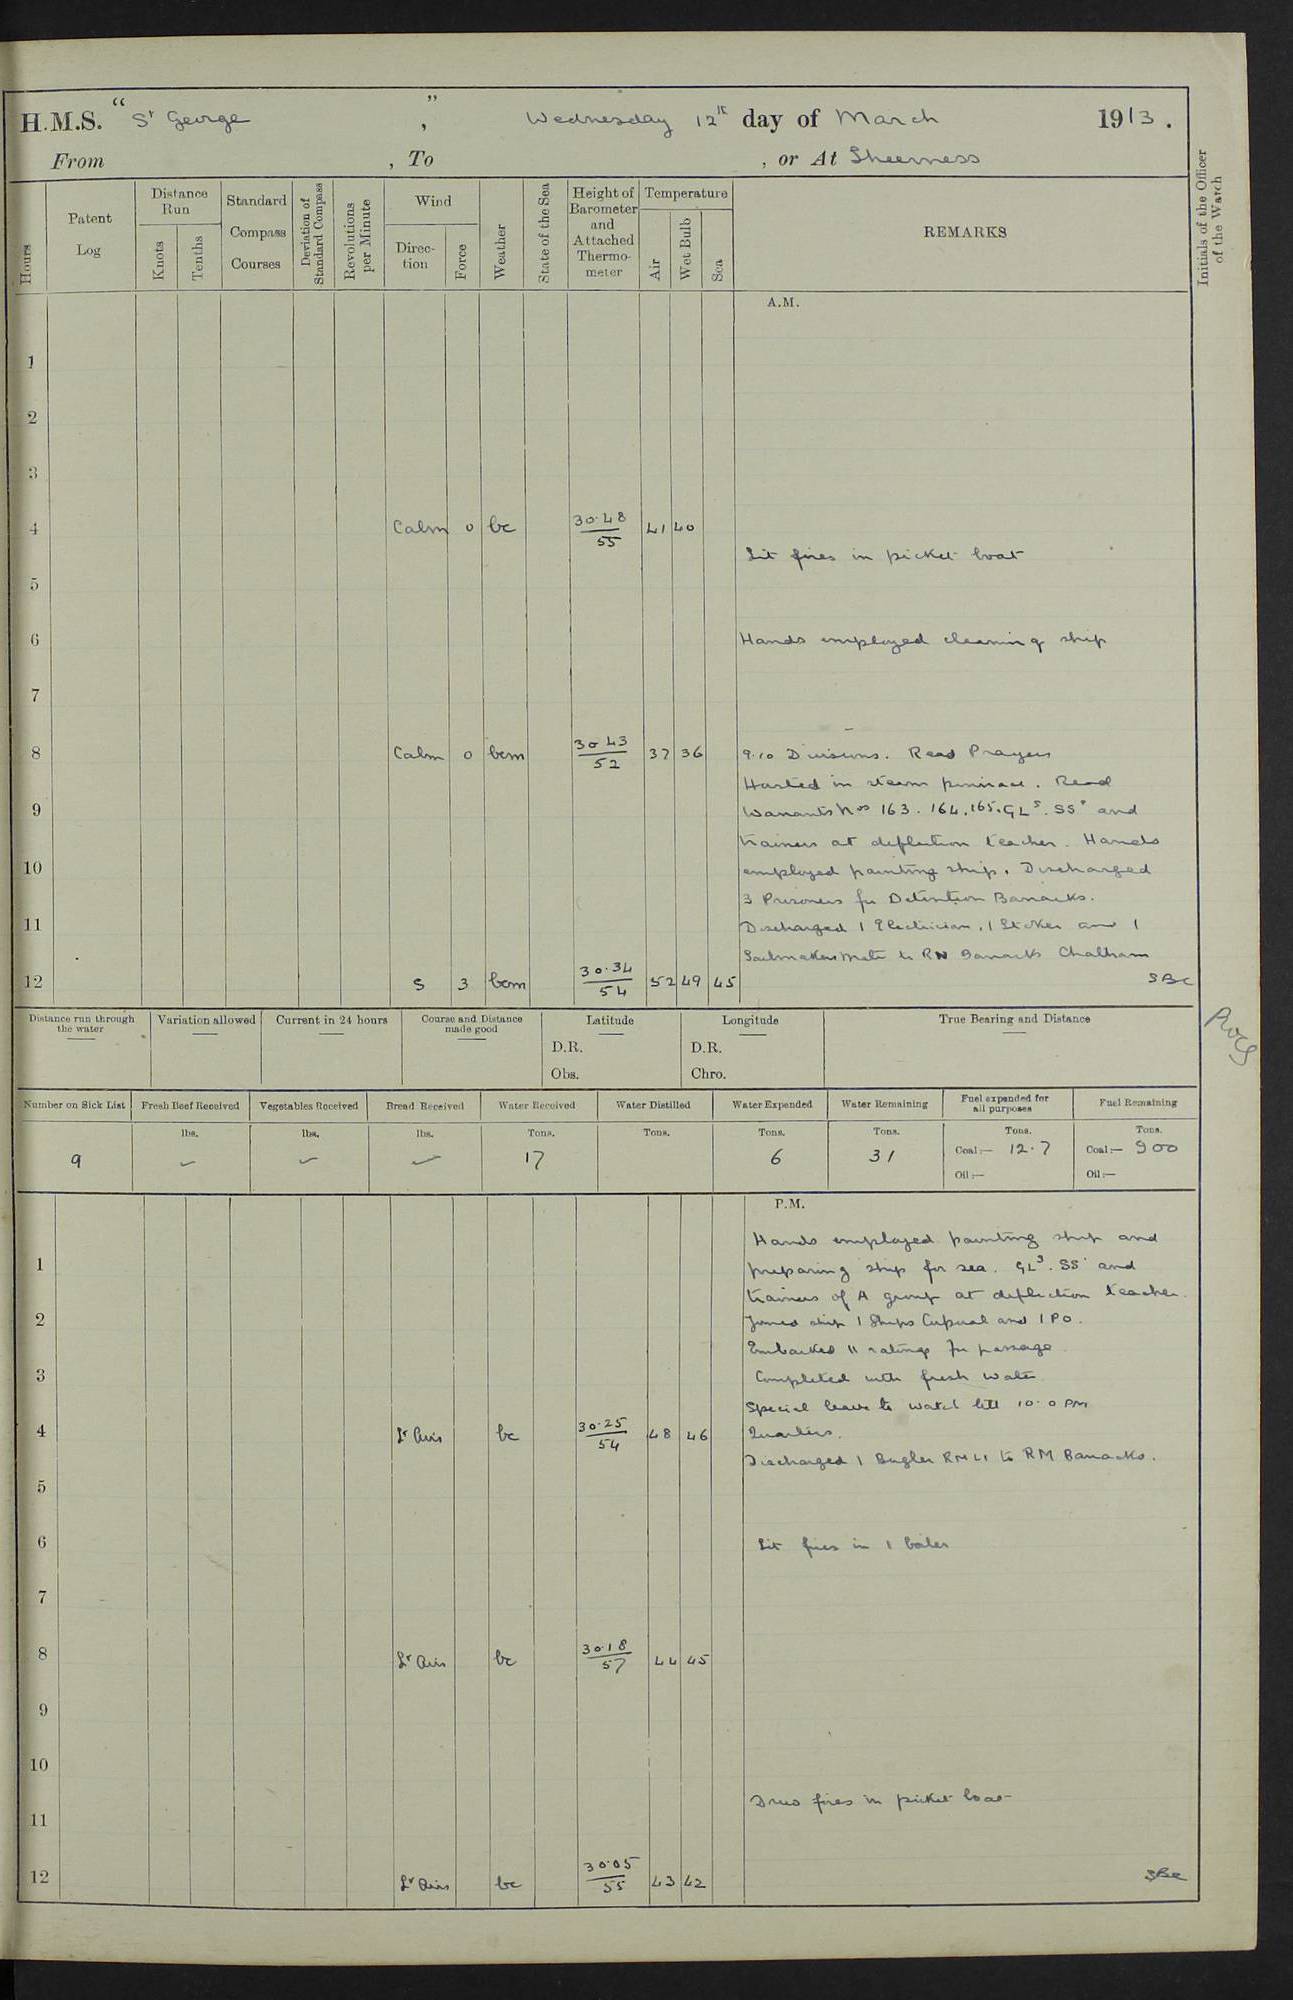 H.M.S. "St George", Wednesday 12th day of March 1913.
From , To , or At Sheerness
Hours
Patent Log
Distance Run
Knots
Tenths
Standard Compass Courses
Deviation of Standard Compass
Revolutions per Minute
Wind
Direction
Force
Weather
State of the Sea
Height of Barometer and Attached Thermometer
Temperature
Air
Wet Bulb
Sea
REMARKS
Initials of the Officer of the Watch
A.M.
1
2
3
4 Calm 0 bc 30.48/55 41 40
Lit fires in picket boat
5
6 Hands employed cleaning ship
7
8 Calm 0 bcm 30.43/52 37 36 9.10 Divisions. Read Prayers
Hoisted in steam pinnace. Read
9 Warrants Nos 163. 164. 165. GLs. SSs and
trainers at deflection teacher. Hands
10 employed painting ship. Discharged
3 Prisoners for Detention Barracks.
11 Discharged 1 Electrician, 1 Stoker and 1
Sailmakers Mate to RN Barracks Chatham
12 S 3 bcm 30.34/54 52 49 45 SBC
Distance run through the water
Variation allowed
Current in 24 hours
Course and Distance made good
Latitude
D.R.
Obs.
Longitude
D.R.
Chro.
True Bearing and Distance
Number on Sick List
Fresh Beef Received
Vegetables Received
Bread Received
Water Received
Water Distilled
Water Expended
Water Remaining
Fuel expended for all purposes
Fuel Remaining
lbs. lbs. lbs. Tons. Tons. Tons. Tons. Tons. Tons.
9 17 6 31 Coal:— 12.7 Coal:— 900
Oil:— Oil:—
P.M.
Hands employed painting ship and
1 preparing ship for sea. GLs. SS and
trainers of A group at deflection teacher.
2 Joined ship 1 Ships Corporal and 1 PO.
Embarked 11 ratings for passage.
3 Completed with fresh water
Special leave to watch till 10.0 PM
4 Lt Airs bc 30.25/54 48 46 Quarters.
Discharged 1 Bugler RMLI to RM Barracks.
5
6 Lit fires in 1 boiler
7
8 Lt Airs bc 30.18/57 44 45
9
10
Drew fires in picket boat
11
12 Lt Airs bc 30.05/55 43 42 SBC